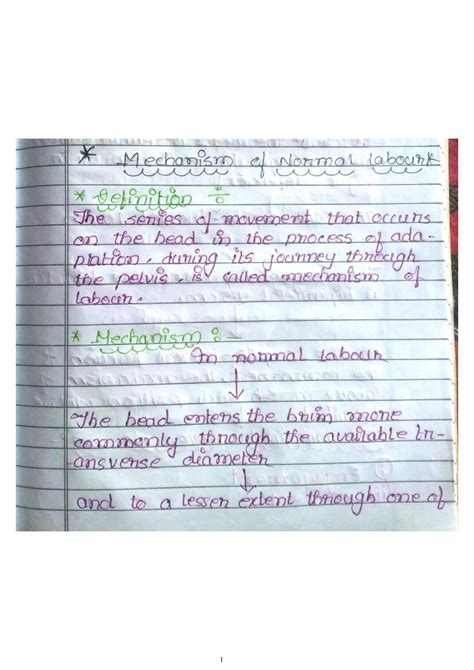 * Mechanism of Normal labour
* Definition ÷
The series of movement that occurs
on the head in the process of ada-
ptation, during its journey through
the pelvis, is called mechanism of
labour.
* Mechanism :-
In normal labour
↓
The head enters the brim more
commonly through the available tr-
ansverse diameter
↓
and to a lesser extent through one of
1